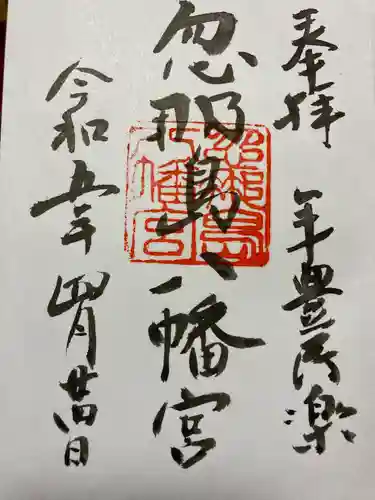 奉拝 年豊人楽
忽那島八幡宮
令和五年四月廿四日